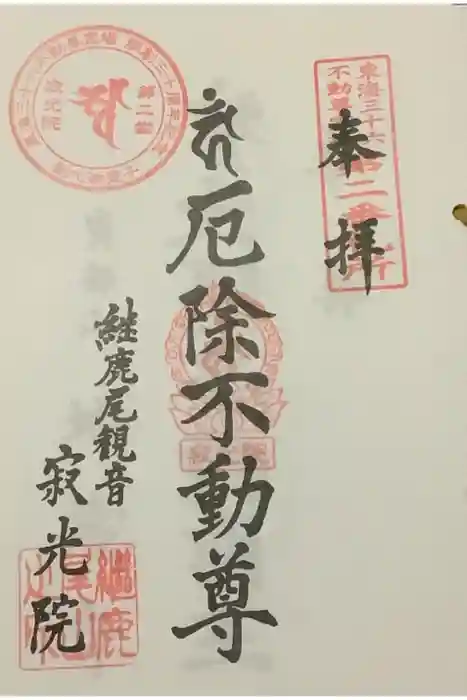 奉拝
東海三十六
不動尊
第二番札所
厄除不動尊
継鹿尾観音
寂光院
第二番
寂光院
継鹿
尾山